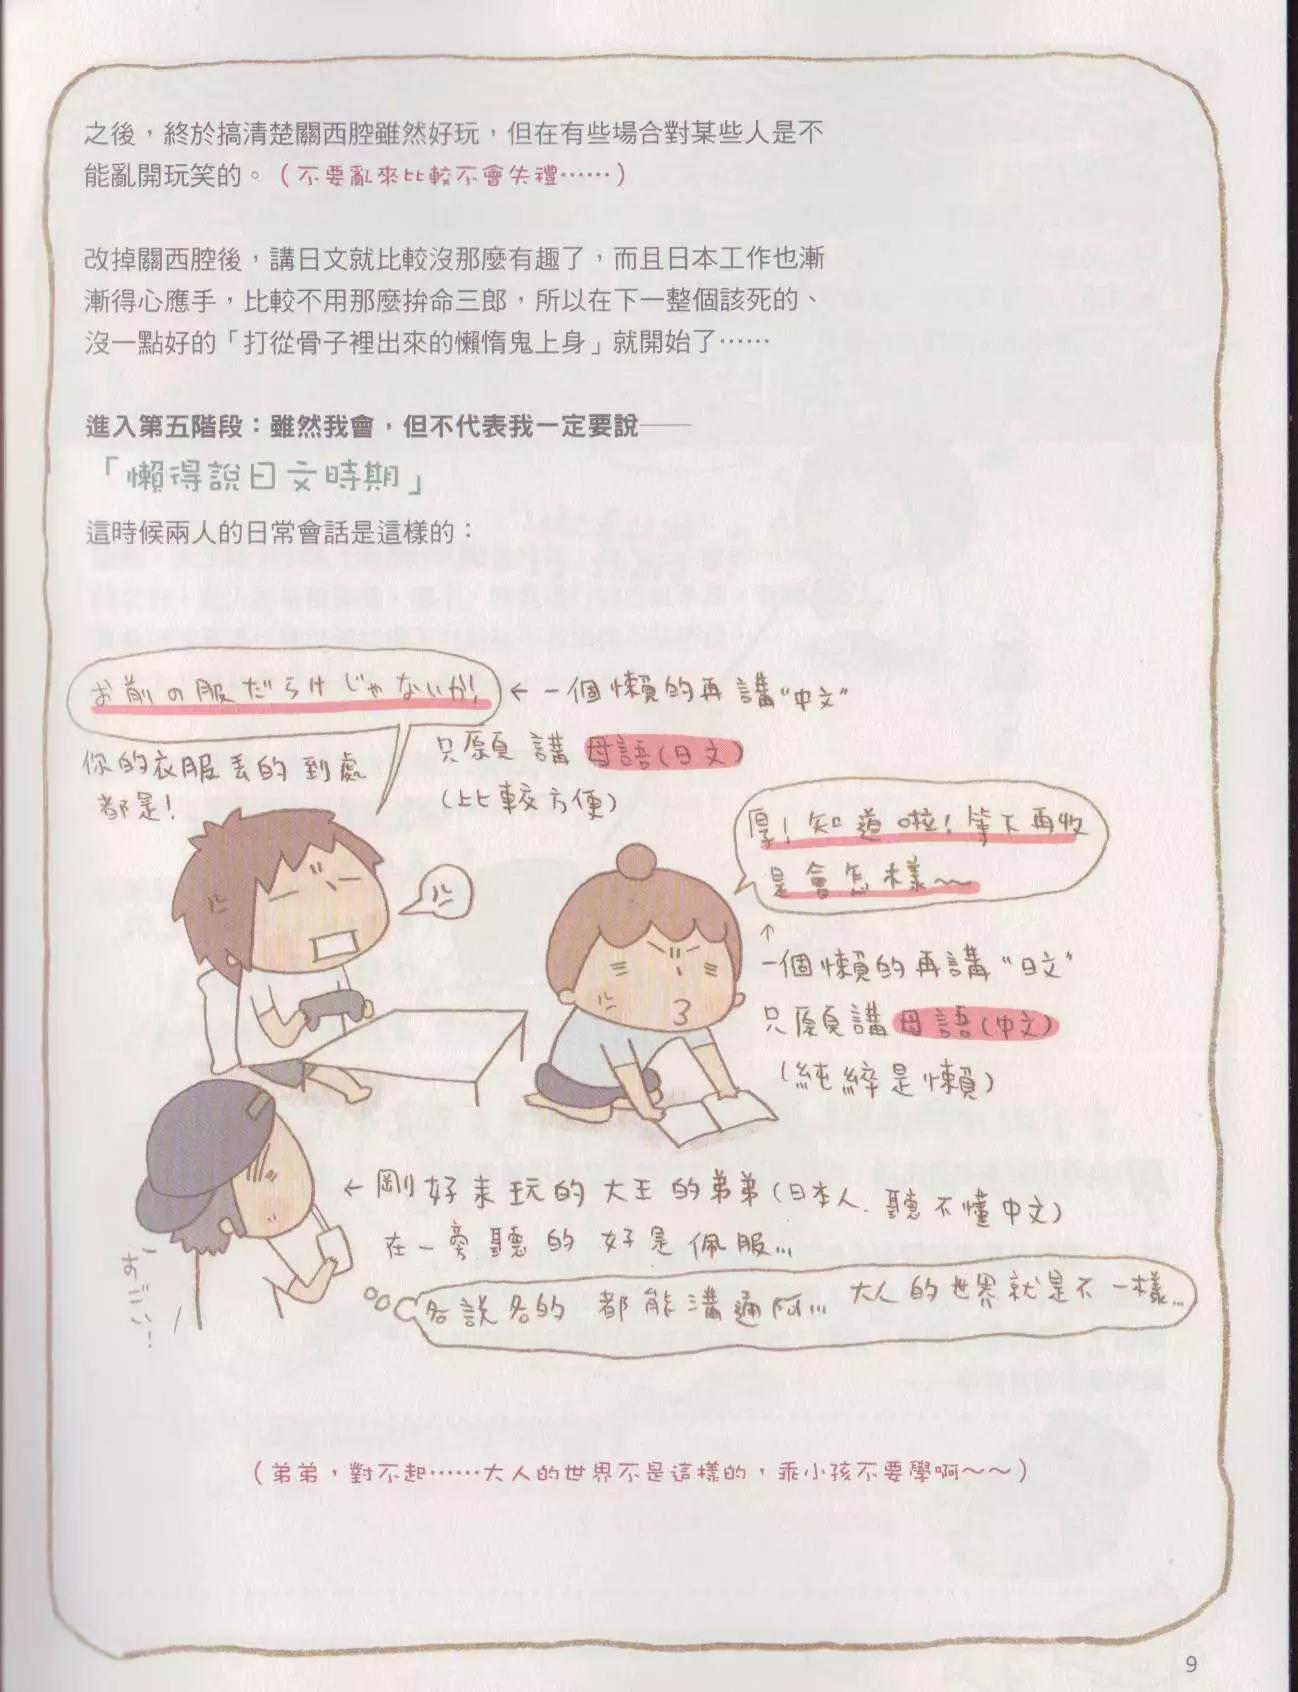 之後，終於搞清楚關西腔雖然好玩，但在有些場合對某些人是不
能亂開玩笑的。（不要亂來比較不會失禮……）
改掉關西腔後，講日文就比較沒那麼有趣了，而且日本工作也漸
漸得心應手，比較不用那麼拚命三郎，所以在下一整個該死的、
沒一點好的「打從骨子裡出來的懶惰鬼上身」就開始了……
進入第五階段：雖然我會，但不代表我一定要說——
「懶得說日文時期」
這時候兩人的日常會話是這樣的：
お前の服だらけじゃないか！
←一個懶的再講"中文"
只願講母語(日文)
(比較方便)
你的衣服丟的到處
都是！
厚！知道啦！等下再收
是會怎樣～
↑
一個懶的再講"日文"
只願講母語(中文)
(純綷是懶)
←剛好來玩的大王的弟弟(日本人.聽不懂中文)
在一旁聽的好是佩服...
各說各的都能溝通阿... 大人的世界就是不一樣...
（弟弟，對不起……大人的世界不是這樣的，乖小孩不要學啊～～）
9